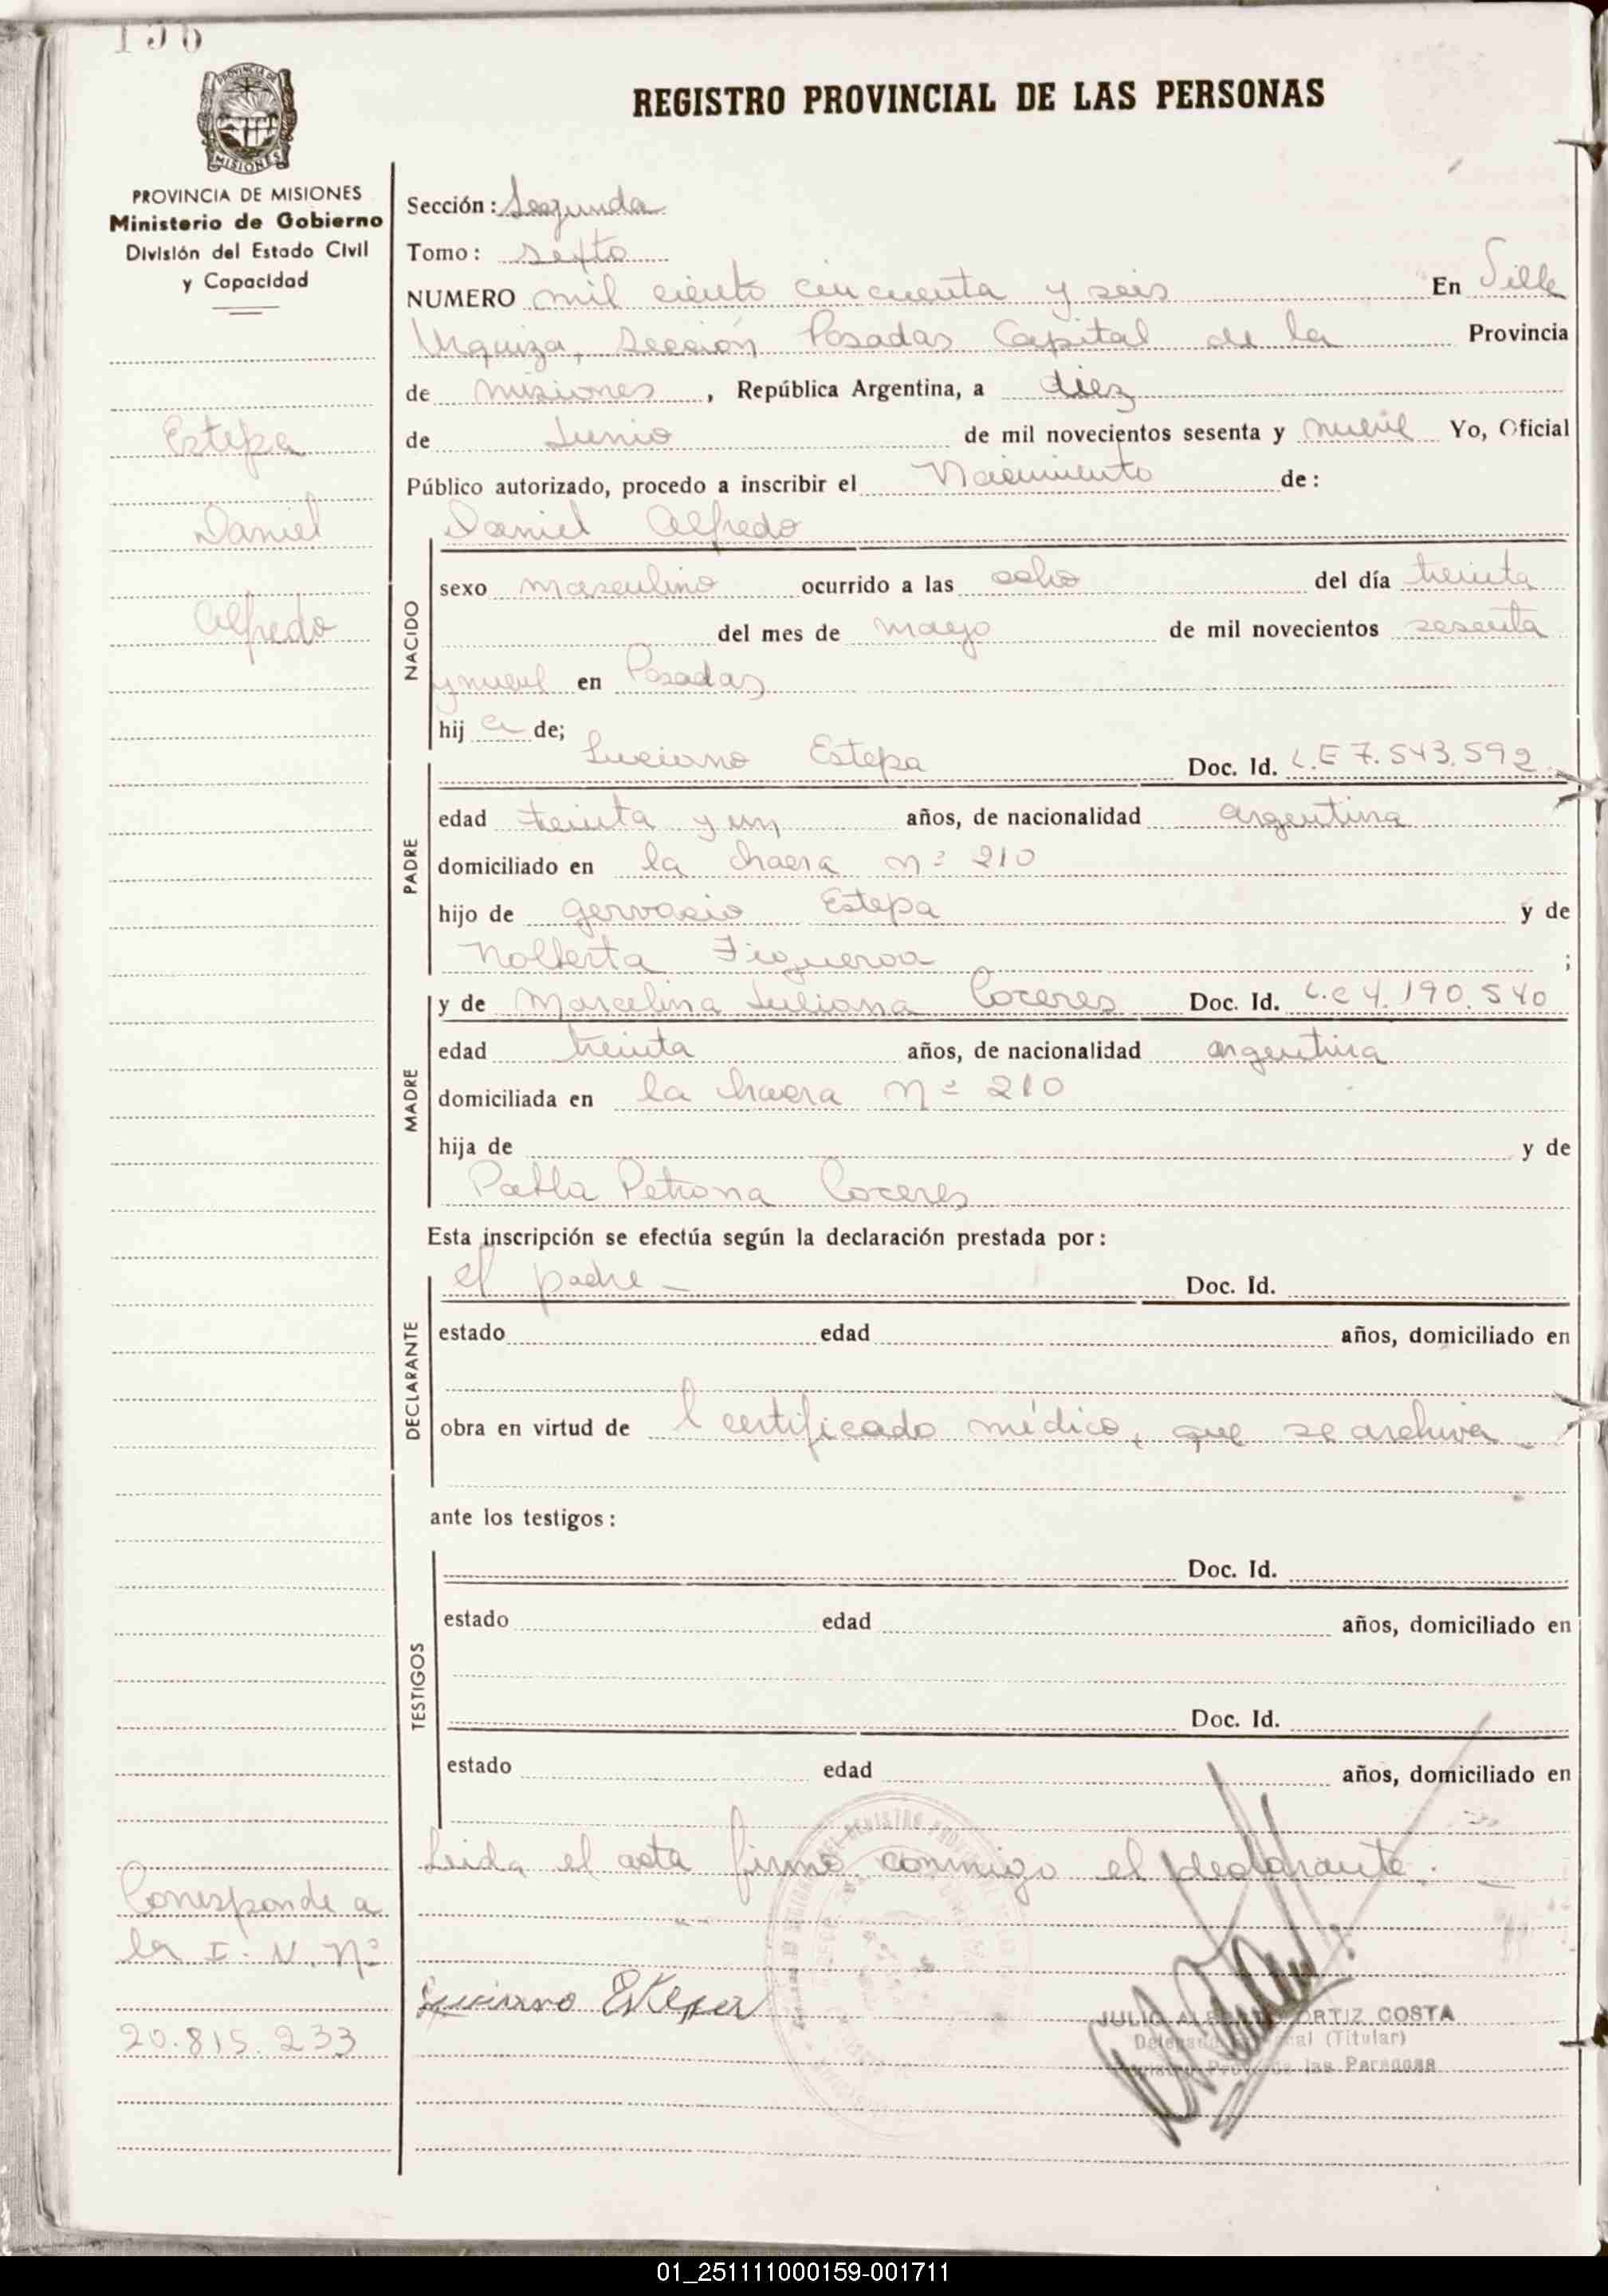 156
REGISTRO PROVINCIAL DE LAS PERSONAS
PROVINCIA DE MISIONES
MISIONES
PROVINCIA DE MISIONES
Ministerio de Gobierno
División del Estado Civil
y Capacidad
Estepa
Daniel
Alfredo
Sección: Segunda
Tomo: sexto
NUMERO mil ciento cincuenta y seis En Villa
Urquiza, Sección Posadas Capital de la Provincia
de misiones, República Argentina, a diez
de Junio de mil novecientos sesenta y nueve Yo, Oficial
Público autorizado, procedo a inscribir el Nacimiento de:
Daniel Alfredo
NACIDO
sexo masculino ocurrido a las ocho del día treinta
del mes de mayo de mil novecientos sesenta
y nueve en Posadas
hij o de;
Luciano Estepa Doc. Id. L.E 7.543.592
PADRE
edad treinta y un años, de nacionalidad argentina
domiciliado en la chacra nº 210
hijo de gervacio Estepa y de
Nolberta Figueroa ;
MADRE
y de Marcelina Juliana Coceres Doc. Id. L.C 4.190.540
edad treinta años, de nacionalidad argentina
domiciliada en la chacra nº 210
hija de y de
Pabla Petrona Coceres
Esta inscripción se efectúa según la declaración prestada por:
DECLARANTE
el padre - Doc. Id.
estado edad años, domiciliado en
obra en virtud de l certificado médico, que se archiva -
ante los testigos:
TESTIGOS
Doc. Id.
estado edad años, domiciliado en
Doc. Id.
estado edad años, domiciliado en
Leida el acta firmó conmigo el declarante. -
Corresponde a
la I. N. Nº
20.815.233
Luciano Estepa
JULIO ALBERTO ORTIZ COSTA
(Titular)
las Personas
01_251111000159-001711